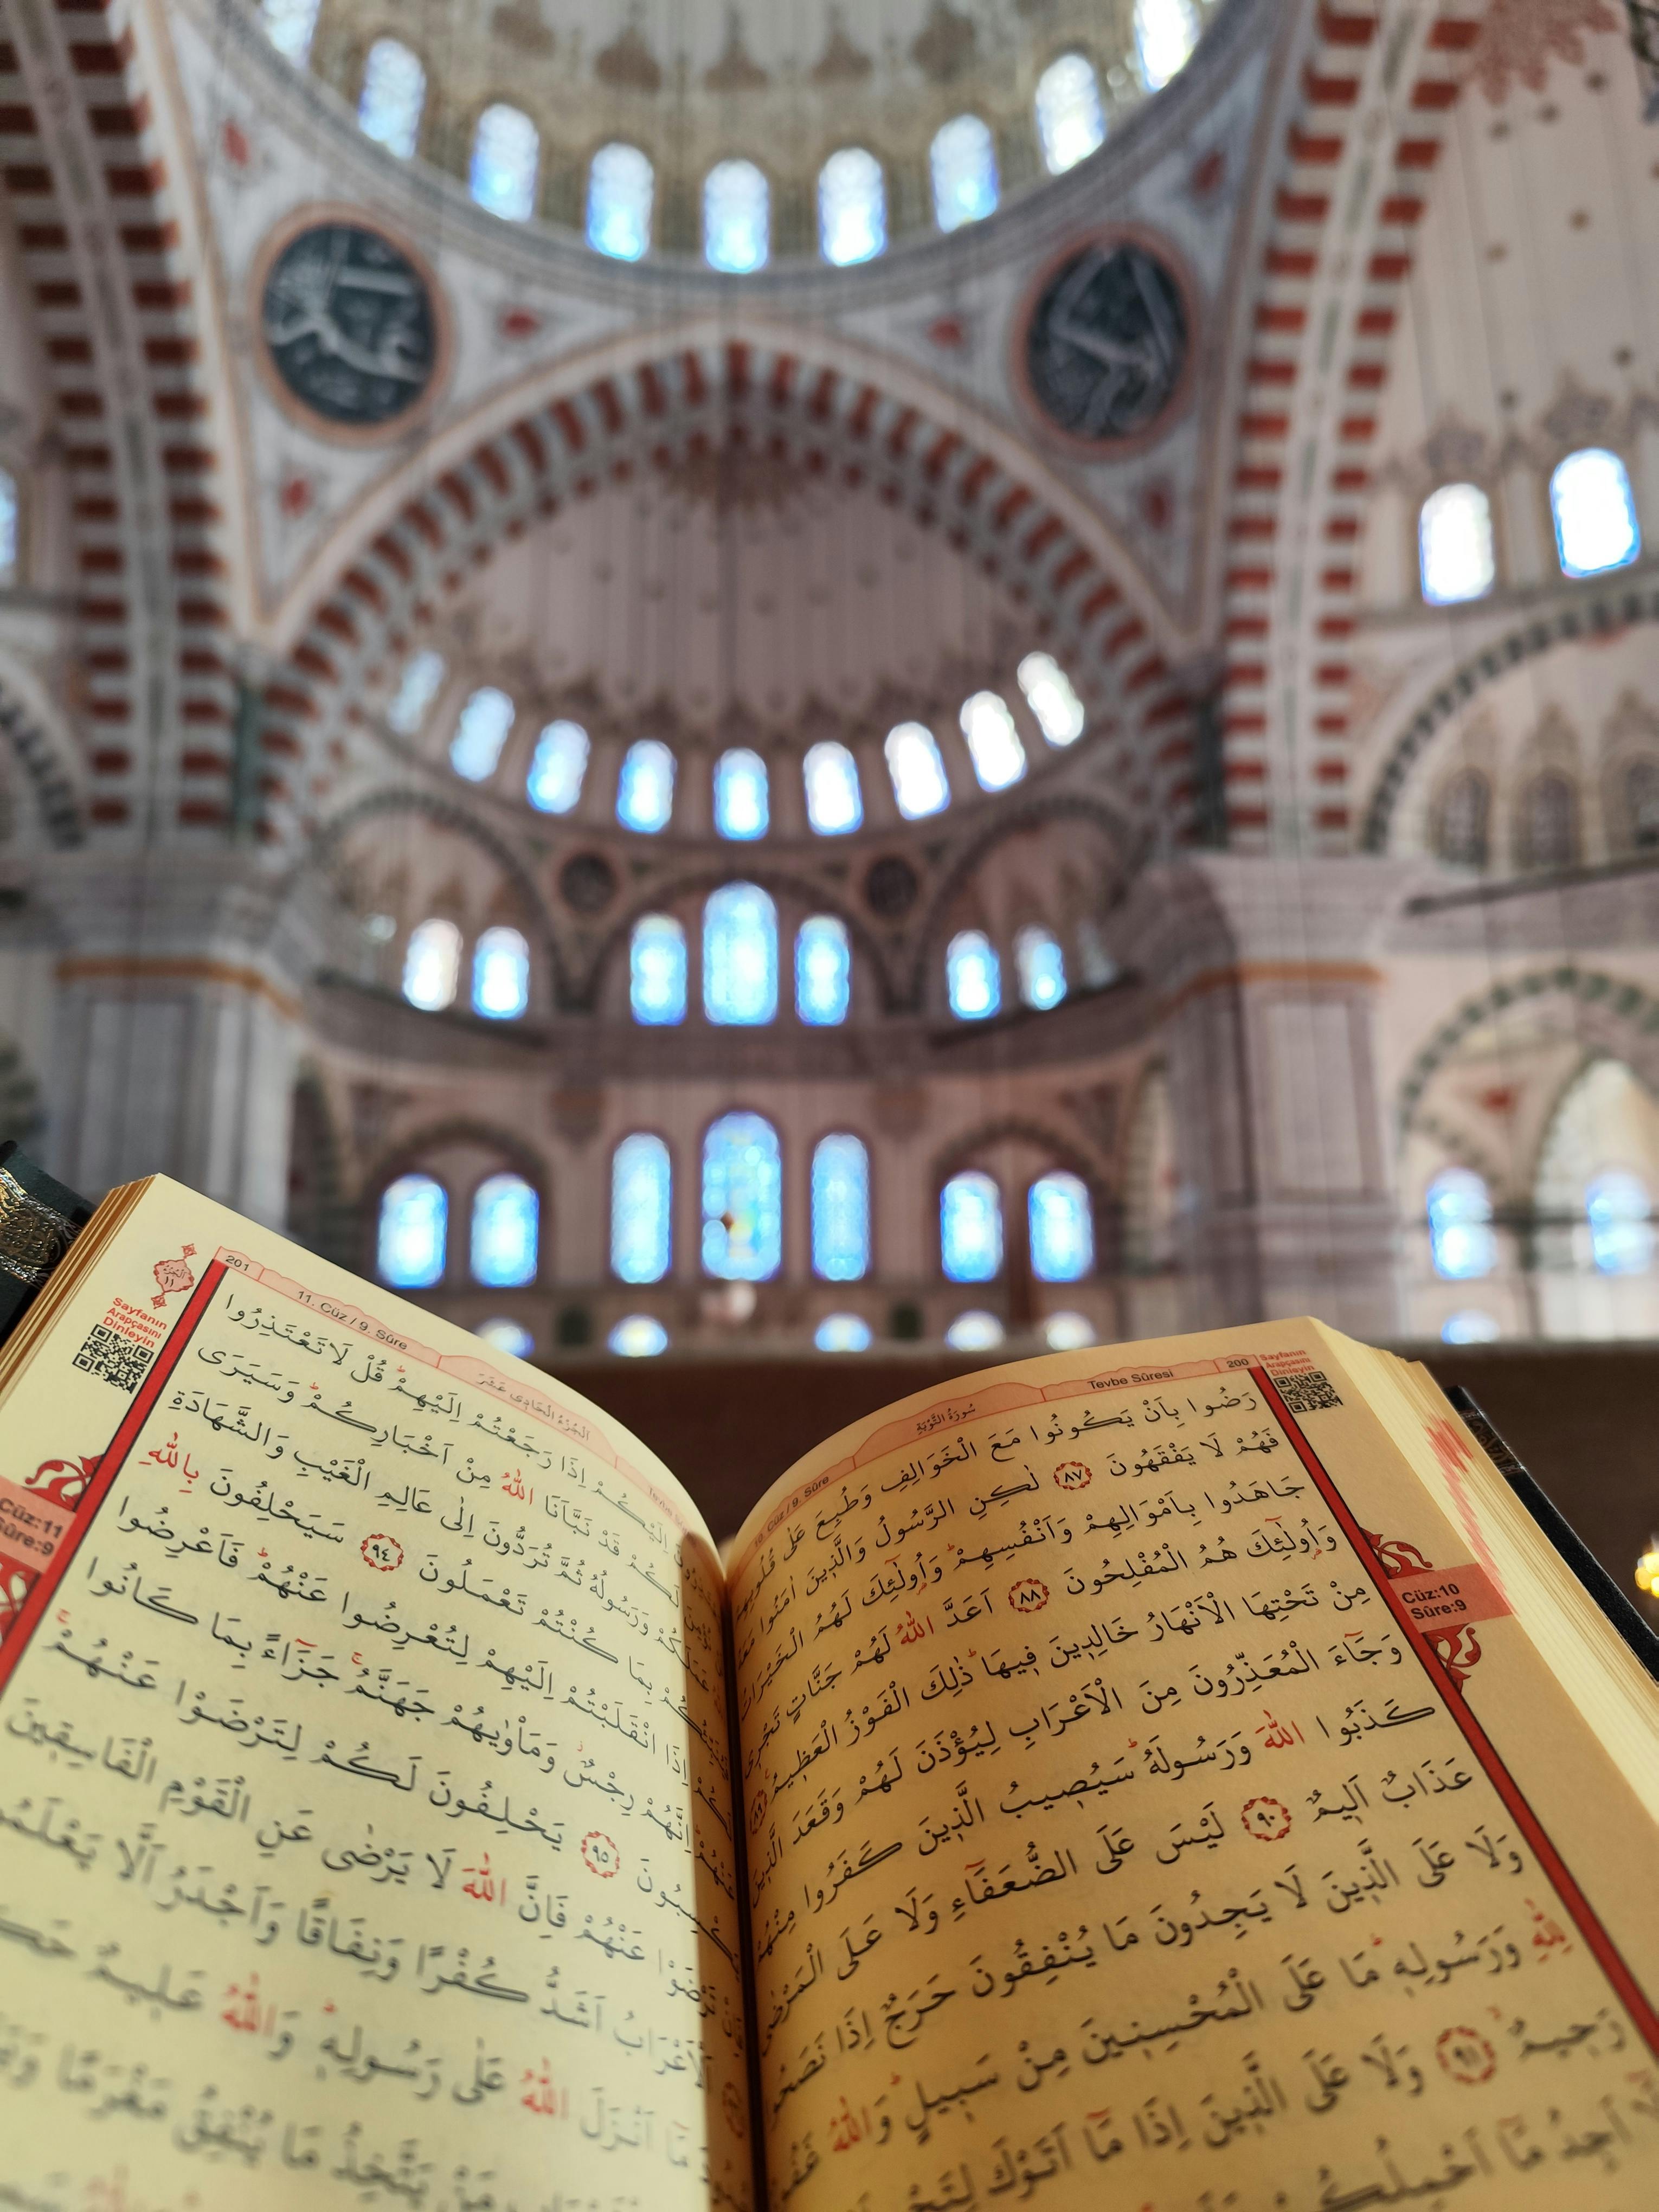 Sayfanın
Arapçasını
Dinleyin
200
Tevbe Sûresi
سُورَةُ التَّوْبَةِ
10. Cüz / 9. Sûre
رَضُوا بِاَنْ يَكُونُوا مَعَ الْخَوَالِفِ وَطُبِعَ عَلٰى قُلُوبِهِمْ
فَهُمْ لَا يَفْقَهُونَ ﴿٨٧﴾ لٰكِنِ الرَّسُولُ وَالَّذٖينَ اٰمَنُوا مَعَهُ
جَاهَدُوا بِاَمْوَالِهِمْ وَاَنْفُسِهِمْ وَاُولٰٓئِكَ لَهُمُ الْخَيْرَاتُ
وَاُولٰٓئِكَ هُمُ الْمُفْلِحُونَ ﴿٨٨﴾ اَعَدَّ اللّٰهُ لَهُمْ جَنَّاتٍ تَجْرٖى
مِنْ تَحْتِهَا الْاَنْهَارُ خَالِدٖينَ فٖيهَا ذٰلِكَ الْفَوْزُ الْعَظٖيمُ ﴿٨٩﴾
وَجَٓاءَ الْمُعَذِّرُونَ مِنَ الْاَعْرَابِ لِيُؤْذَنَ لَهُمْ وَقَعَدَ الَّذٖينَ
كَذَبُوا اللّٰهَ وَرَسُولَهُ سَيُصٖيبُ الَّذٖينَ كَفَرُوا مِنْهُمْ
عَذَابٌ اَلٖيمٌ ﴿٩٠﴾ لَيْسَ عَلَى الضُّعَفَٓاءِ وَلَا عَلَى الْمَرْضٰى
وَلَا عَلَى الَّذٖينَ لَا يَجِدُونَ مَا يُنْفِقُونَ حَرَجٌ اِذَا نَصَحُوا
لِلّٰهِ وَرَسُولِهٖ مَا عَلَى الْمُحْسِنٖينَ مِنْ سَبٖيلٍ وَاللّٰهُ غَفُورٌ
رَحٖيمٌ ﴿٩١﴾ وَلَا عَلَى الَّذٖينَ اِذَا مَٓا اَتَوْكَ
اَجِدُ مَٓا اَحْمِلُكُمْ
Cüz:10
Sûre:9
الجزء
١١
Sayfanın
Arapçasını
Dinleyin
201
11. Cüz / 9. Sûre
اَلْجُزْءُ الْحَادِى عَشَرَ
اِلَيْكُمْ اِذَا رَجَعْتُمْ اِلَيْهِمْ قُلْ لَا تَعْتَذِرُوا
لَكُمْ قَدْ نَبَّاَنَا اللّٰهُ مِنْ اَخْبَارِكُمْ وَسَيَرَى
عَمَلَكُمْ وَرَسُولُهُ ثُمَّ تُرَدُّونَ اِلٰى عَالِمِ الْغَيْبِ وَالشَّهَادَةِ
بِمَا كُنْتُمْ تَعْمَلُونَ ﴿٩٤﴾ سَيَحْلِفُونَ بِاللّٰهِ
اِذَا انْقَلَبْتُمْ اِلَيْهِمْ لِتُعْرِضُوا عَنْهُمْ فَاَعْرِضُوا
اِنَّهُمْ رِجْسٌ وَمَاْوٰيهُمْ جَهَنَّمُ جَزَٓاءً بِمَا كَانُوا
يَكْسِبُونَ ﴿٩٥﴾ يَحْلِفُونَ لَكُمْ لِتَرْضَوْا عَنْهُمْ
تَرْضَوْا عَنْهُمْ فَاِنَّ اللّٰهَ لَا يَرْضٰى عَنِ الْقَوْمِ الْفَاسِقٖينَ
اَلْاَعْرَابُ اَشَدُّ كُفْرًا وَنِفَاقًا وَاَجْدَرُ اَلَّا يَعْلَمُوا
مَٓا اَنْزَلَ اللّٰهُ عَلٰى رَسُولِهٖ وَاللّٰهُ عَلٖيمٌ
مَنْ يَتَّخِذُ مَا يُنْفِقُ مَغْرَمًا
Cüz:11
Sûre:9